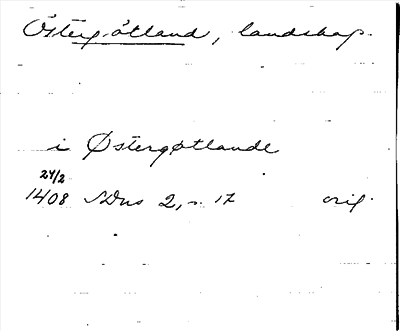 Östergötland, landskap.
i Østergøtlande
24/2
1408 SDns 2, n. 17 orig.